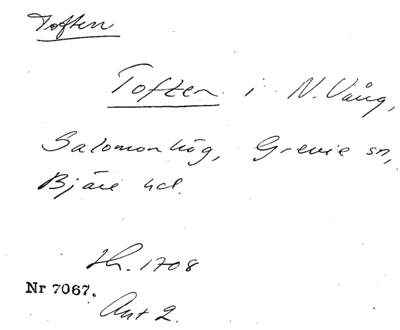 Toften
Toften i N. Vång,
Salomonhög, Grevie sn,
Bjäre hd.
Lh. 1708
Nr 7067.
Akt 2.